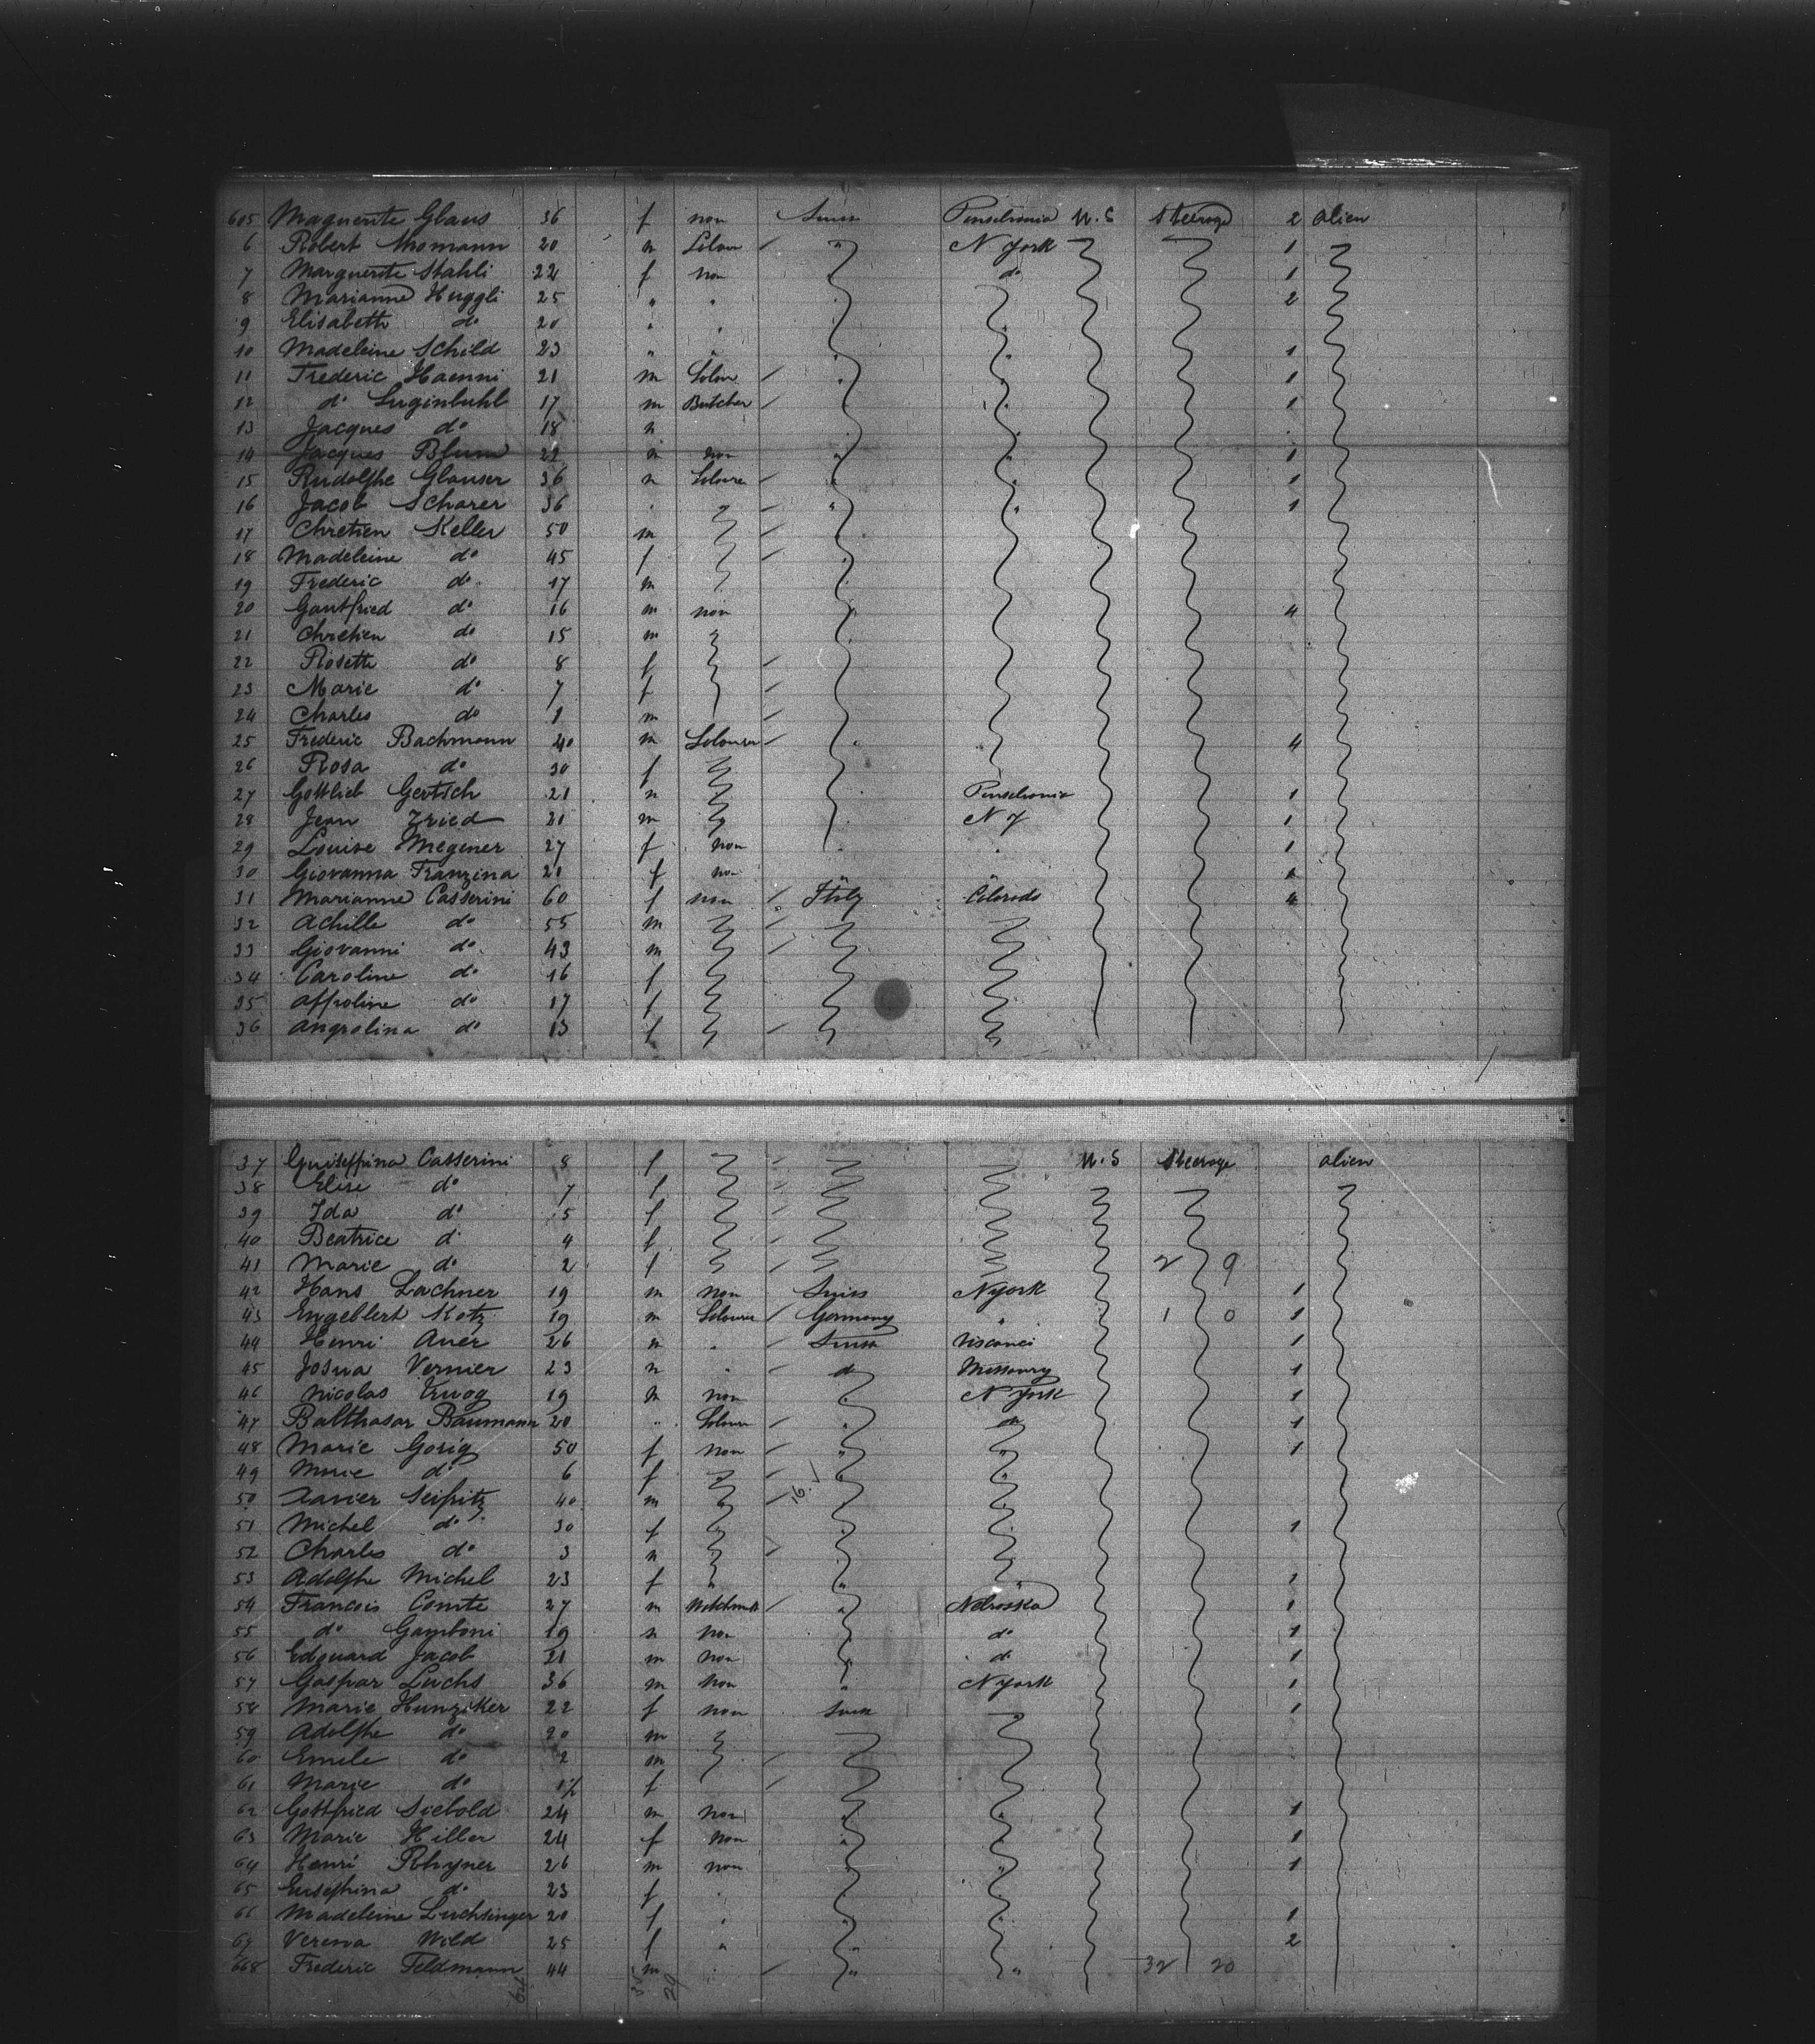 605 Maguerite Glaus 36 f non Suiss Penselvania U.S Steerage 2 alien
6 Robert Thomann 20 m N York 1
7 Marguerite Stahli 22 f non do 1
8 Marianne Huggli 25 " " 2
9 Elisabeth do 20 " "
10 Madeleine Schild 23 " " 1
11 Frederic Haenni 21 m 1
12 do Luginbuhl 17 m Butcher 1
13 Jacques do 18 m
14 Jacques Blum 22 m non 1
15 Rudolphe Glauser 36 m 1
16 Jacob Scharer 36 " 1
17 Chretien Keller 50 m
18 Madeleine do 45 f
19 Frederic do 17 m
20 Gautfried do 16 m non 4
21 Chretien do 15 m
22 Rosette do 8 f
23 Marie do 7 f
24 Charles do 1 m
25 Frederic Bachmann 40 m 4
26 Rosa do 30 f
27 Gottlieb Gertsch 21 m Penselvania 1
28 Jean Fried 21 m N Y 1
29 Louise Megener 27 f non 1
30 Giovanna Franzina 21 f non 1
31 Marianne Casserini 60 f non Italy Colorado 4
32 Achille do 55 m
33 Giovanni do 43 m
34 Caroline do 16 f
35 Appoline do 17 f
36 Angrolina do 13 f
37 Guiseppina Casserini 8 f U.S Steerage alien
38 Elise do 7 f
39 Ida do 5 f
40 Beatrice do 4 f
41 Marie do 2 f 2 9
42 Hans Lachner 19 m non Suiss N York 1
43 Engelbert Kotz 19 m Germany " 1 0 1
44 Henri Auer 26 m " Suiss Visconci 1
45 Josua Vernier 23 m " do Missoury 1
46 Nicolas Truog 19 m non N York 1
47 Balthasar Baumann 20 " do 1
48 Marie Gorig 50 f non " 1
49 Marie do 6 f
50 Xavier Seifritz 40 m
51 Michel do 30 f 1
52 Charles do 3 m
53 Adolphe Michel 23 f " 1
54 Francois Comte 27 m Nebraska 1
55 do Gamboni 19 m non do 1
56 Edouard Jacob 21 m non do 1
57 Gaspar Luchs 36 m non " N York 1
58 Marie Hunziker 22 f non Suiss 1
59 Adolphe do 20 m
60 Emile do 2 m
61 Marie do 1/2 f
62 Gottfried Siebold 24 m non 1
63 Marie Hiller 24 f non 1
64 Henri Rhyner 26 m non 1
65 Eusephina do 23 f "
66 Madeleine Luchsinger 20 f " 1
67 Verena Wild 25 f " 2
668 Frederic Feldmann 44 m " 32 20